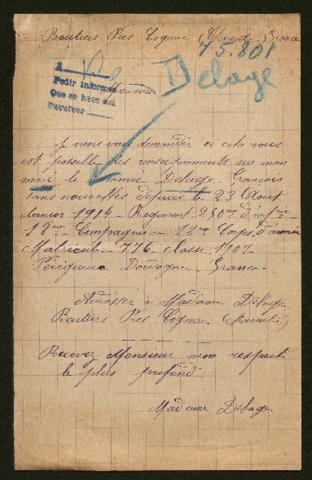 Boutiers Près Cognac (Charente) France
75.801
Delage
Monsieur
Pedir informes
Que se hace así
Je viens vous demander si cela vous
est possible des renseignements sur mon
mari le nommé Delage François
sans nouvelles depuis le 23 Août
dernier 1914 - Regiment 250me d'inf
18me Compagnie - 12me Corps d'armée
Matricule 776 classe 1907
Périgueux Dordogne France
Adresser à Madame Delage
Boutiers Près Cognac (Charente)
Recevez Monsieur mon respect
le plus profond
Madame Delage